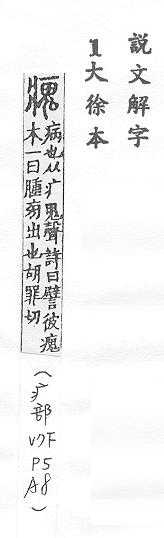 說文解字
1大徐本
瘣
病也从疒鬼聲詩曰譬彼瘣
木一曰腫㫄出也胡罪切
(疒部 V7F P5 A8)